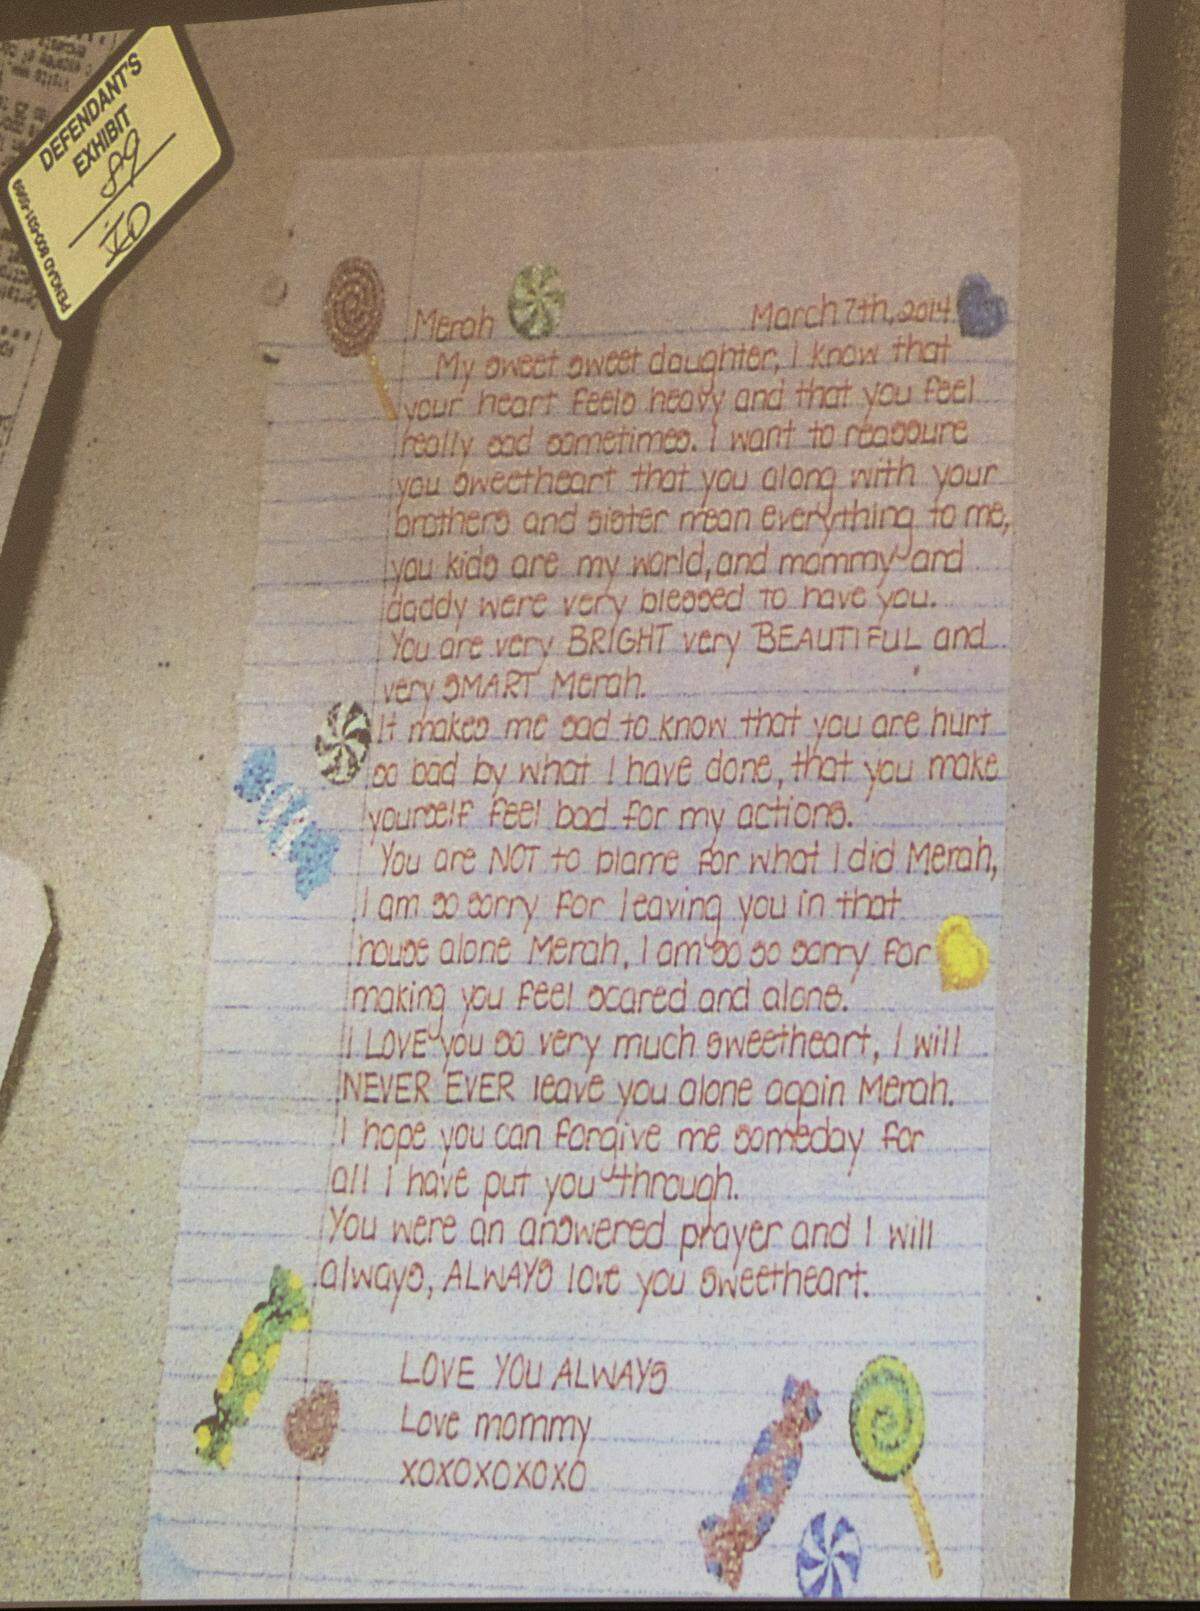 DEFENDANT'S
EXHIBIT
89
ID
PENGAD 800-631-6989
Merah
March 7th, 2014
My sweet sweet daughter, I know that
your heart feels heavy and that you feel
really sad sometimes. I want to reassure
you sweetheart that you along with your
brothers and sister mean everything to me,
you kids are my world, and mommy and
daddy were very blessed to have you.
You are very BRIGHT very BEAUTIFUL and
very SMART Merah.
It makes me sad to know that you are hurt
so bad by what I have done, that you make
yourself feel bad for my actions.
You are NOT to blame for what I did Merah,
I am so sorry for leaving you in that
house alone Merah, I am so so sorry for
making you feel scared and alone.
I LOVE you so very much sweetheart, I will
NEVER EVER leave you alone again Merah.
I hope you can forgive me someday for
all I have put you through.
You were an answered prayer and I will
always, ALWAYS love you sweetheart.
LOVE YOU ALWAYS
Love mommy
XOXOXOXOXO